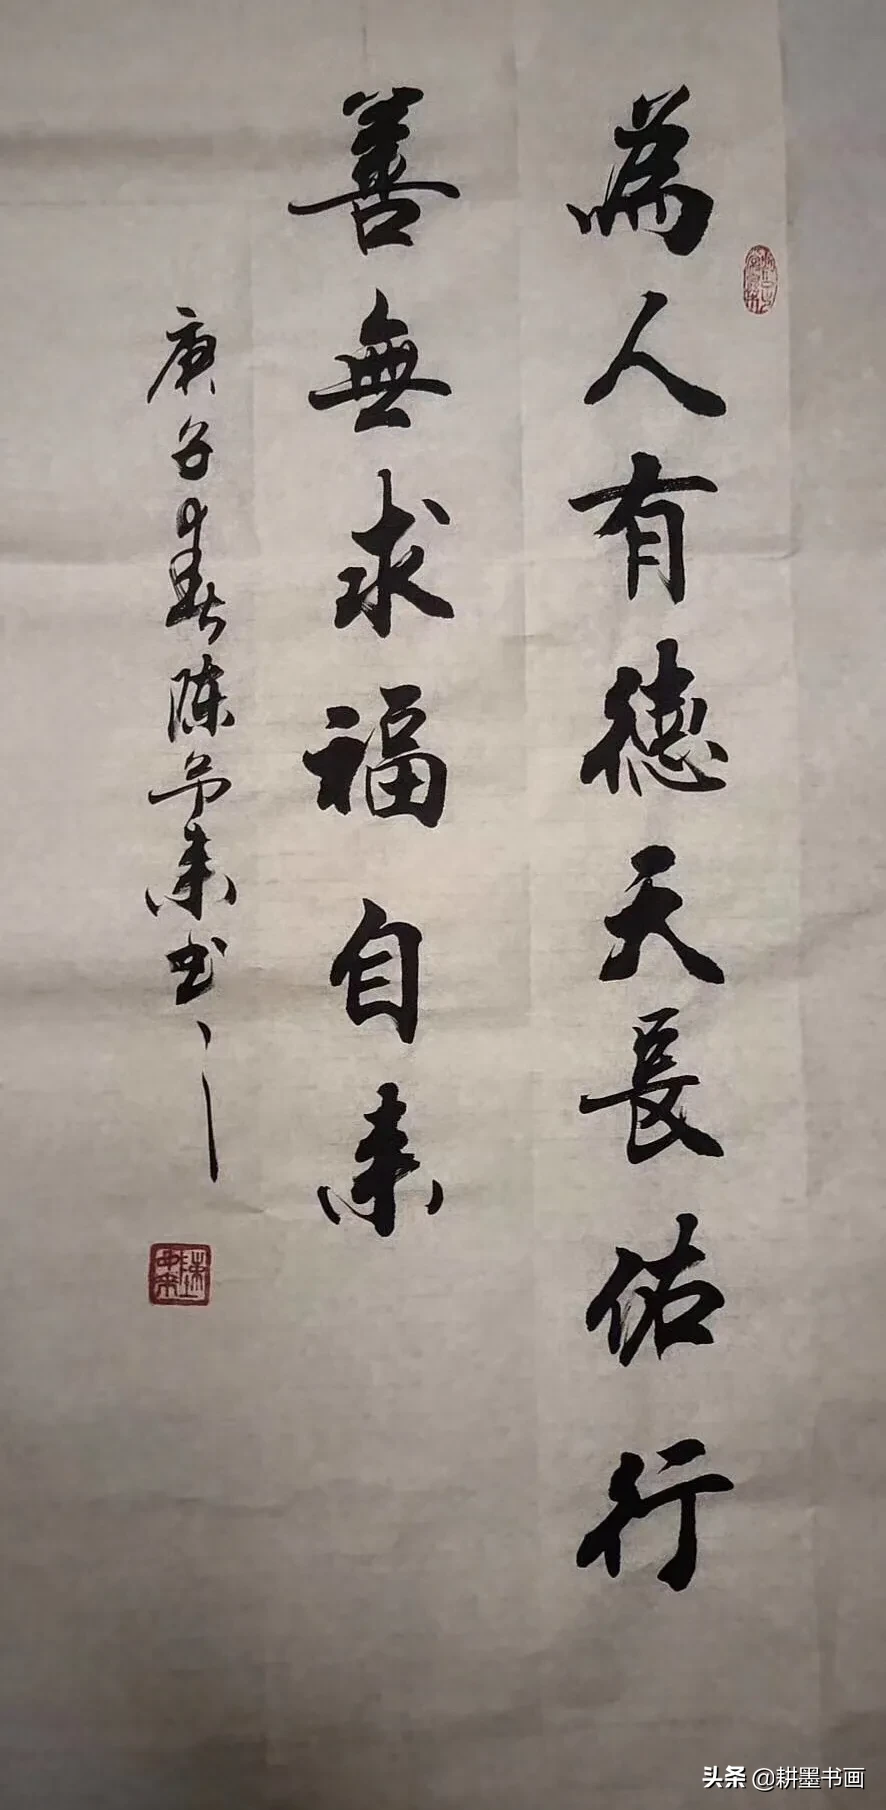 為人有德天長佑行
善無求福自来
庚子春陈予来书
头条 @耕墨书画